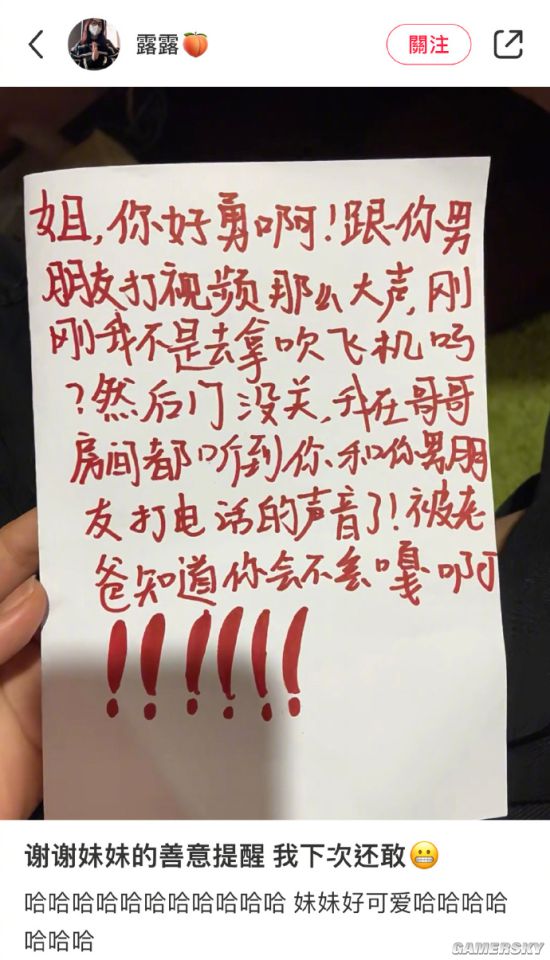 露露🍑
關注
姐,你好勇啊!跟你男
朋友打视频那么大声,刚
刚我不是去拿吹飞机吗
?然后门没关,我在哥哥
房间都听到你和你男朋
友打电话的声音了!被老
爸知道你会不会嘎啊
!!!!!!
谢谢妹妹的善意提醒 我下次还敢😬
哈哈哈哈哈哈哈哈哈哈哈 妹妹好可爱哈哈哈哈
哈哈哈
GAMERSKY